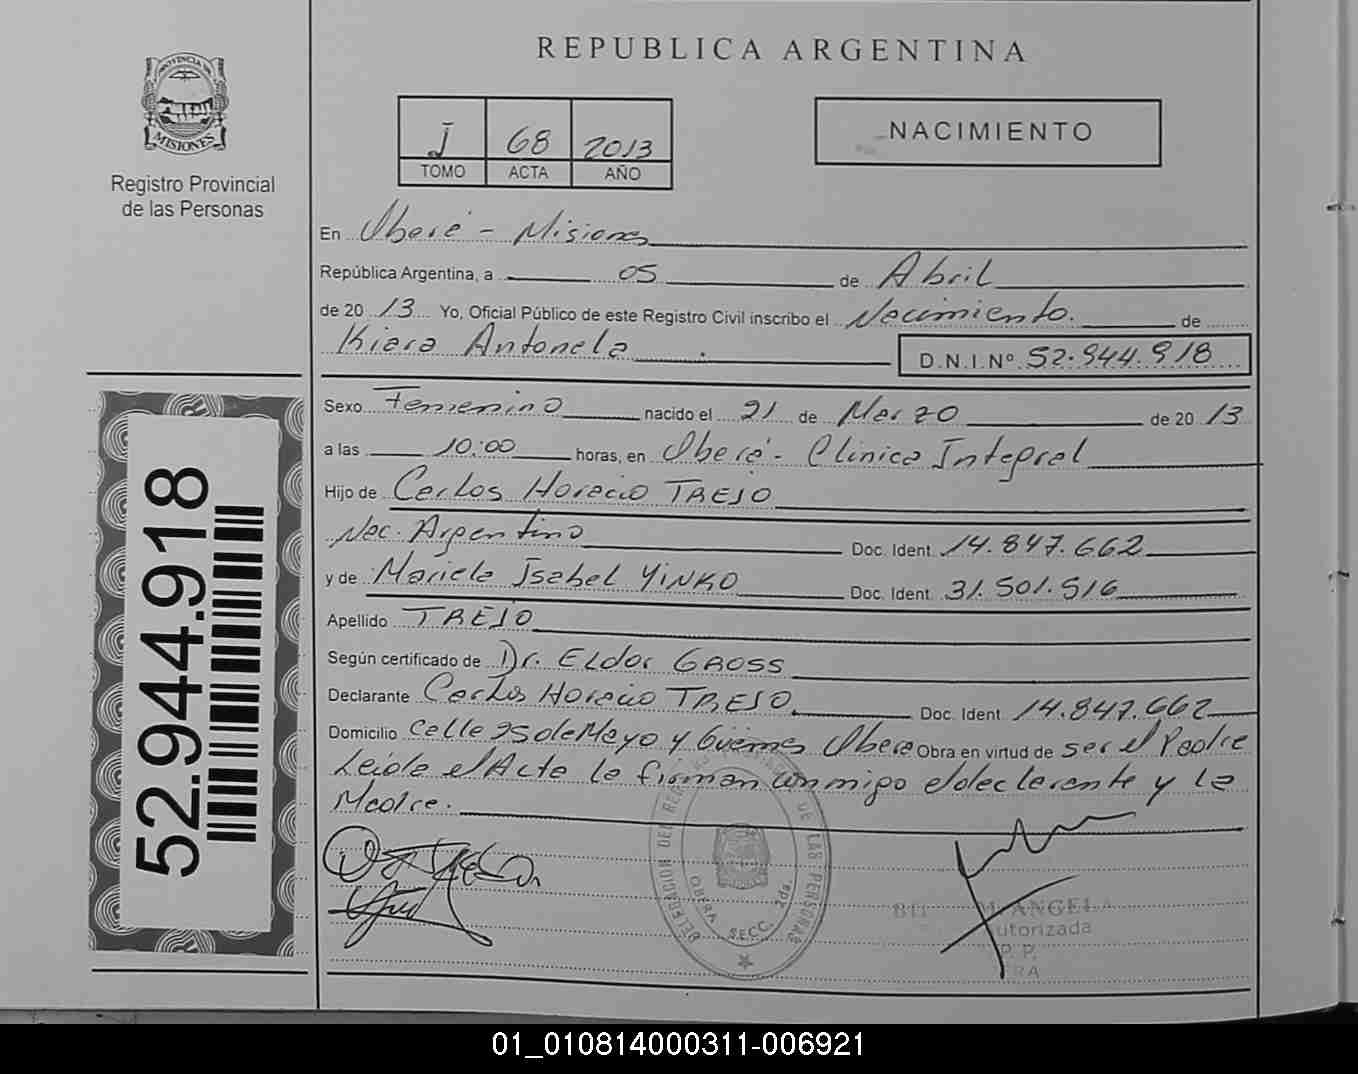 PROVINCIA DE
MISIONES
Registro Provincial
de las Personas
52.944.918
REPUBLICA ARGENTINA
I 68 2013
TOMO ACTA AÑO
NACIMIENTO
En Oberá - Misiones
República Argentina, a 05 de Abril
de 2013 Yo, Oficial Público de este Registro Civil inscribo el Nacimiento. de
Kiara Antonela
D.N.I.Nº 52.944.918
Sexo Femenino nacido el 21 de Marzo de 2013
a las 10:00 horas, en Oberá - Clinica Integral
Hijo de Carlos Horacio TREJO
Nac. Argentino Doc. Ident. 14.847.662
y de Mariela Isabel YINKO Doc. Ident. 31.501.516
Apellido TREJO
Según certificado de Dr. ELdor GROSS
Declarante Carlos Horacio TREJO Doc. Ident. 14.847.662
Domicilio calle 25 de Mayo y Güemes Oberá Obra en virtud de ser el Padre
Leida el Acta la firman conmigo el declarante y la
Madre.
DELEGACION DEL REGISTRO PROVINCIAL DE LAS PERSONAS
OBERA SECC. 2da.
M. ANGELA
utorizada
P. P.
RA
01_010814000311-006921